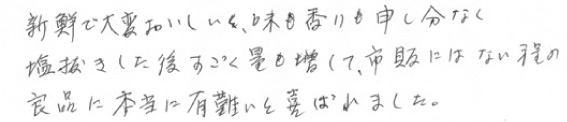 新鮮で大変おいしいと、味も香りも申し分なく
塩抜きした後すごく量も増して、市販にはない程の
良品に本当に有難いと喜ばれました。